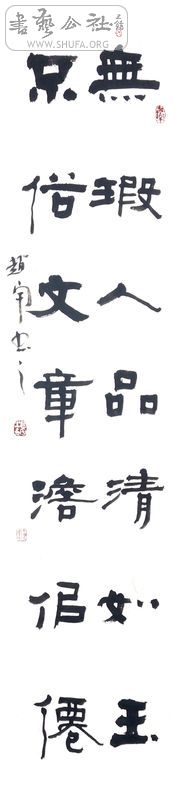 書藝公社
WWW.SHUFA.ORG
無瑕人品清如玉
不俗文章澹佀僊
趙宇書之